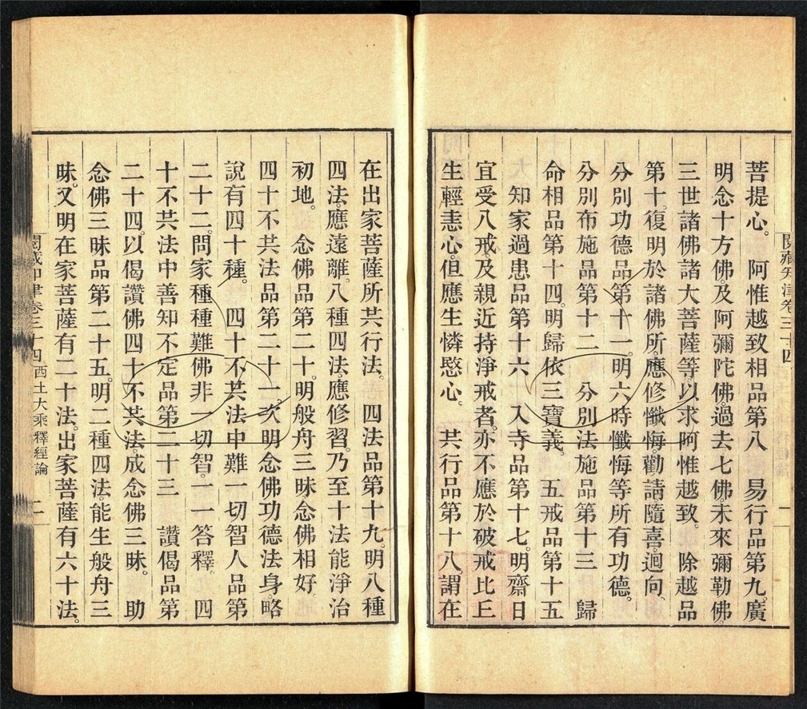 菩提心。　阿惟越致相品第八　易行品第九。廣
明念十方佛。及阿彌陀佛。過去七佛。未來彌勒佛。
三世諸佛。諸大菩薩等。以求阿惟越致。　除越品
第十。復明於諸佛所。應修懺悔。勸請。隨喜。迴向。
分別功德品第十一。明六時懺悔等所有功德。
分別布施品第十二　分別法施品第十三　歸
命相品第十四。明歸依三寶義。　五戒品第十五
知家過患品第十六　入寺品第十七。明齋日
宜受八戒。及親近持淨戒者。亦不應於破戒比丘
生輕恚心。但應生憐愍心。　共行品第十八。謂在
閱藏知津卷三十四　一
在出家菩薩所共行法。　四法品第十九。明八種
四法。應遠離。八種四法。應修習。乃至十法能淨治
初地。　念佛品第二十。明般舟三昧念佛相好。
四十不共法品第二十一。次明念佛功德法身。略
說有四十種。　四十不共法中難一切智人品第
二十二。問家種種難佛非一切智。一一答釋。　四
十不共法中善知不定品第二十三　讚偈品第
二十四。以偈讚佛四十不共法。成念佛三昧。　助
念佛三昧品第二十五。明二種四法。能生般舟三
昧。又明在家菩薩有二十法。出家菩薩有六十法。
閱藏知津卷三十四　西土大乘釋經論　二